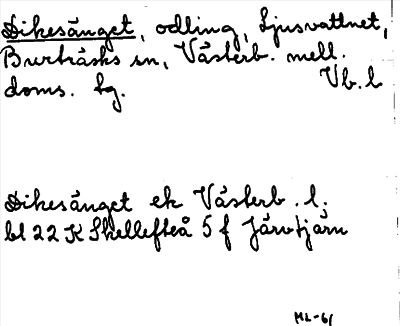 Dikesänget, odling, Ljusvattnet,
Burträsks sn, Västerb. mell.
doms. hg. Vb. l
Dikesänget ek Västerb. l.
bl 22 K Skellefteå 5 f Järvtjärn
HL-61